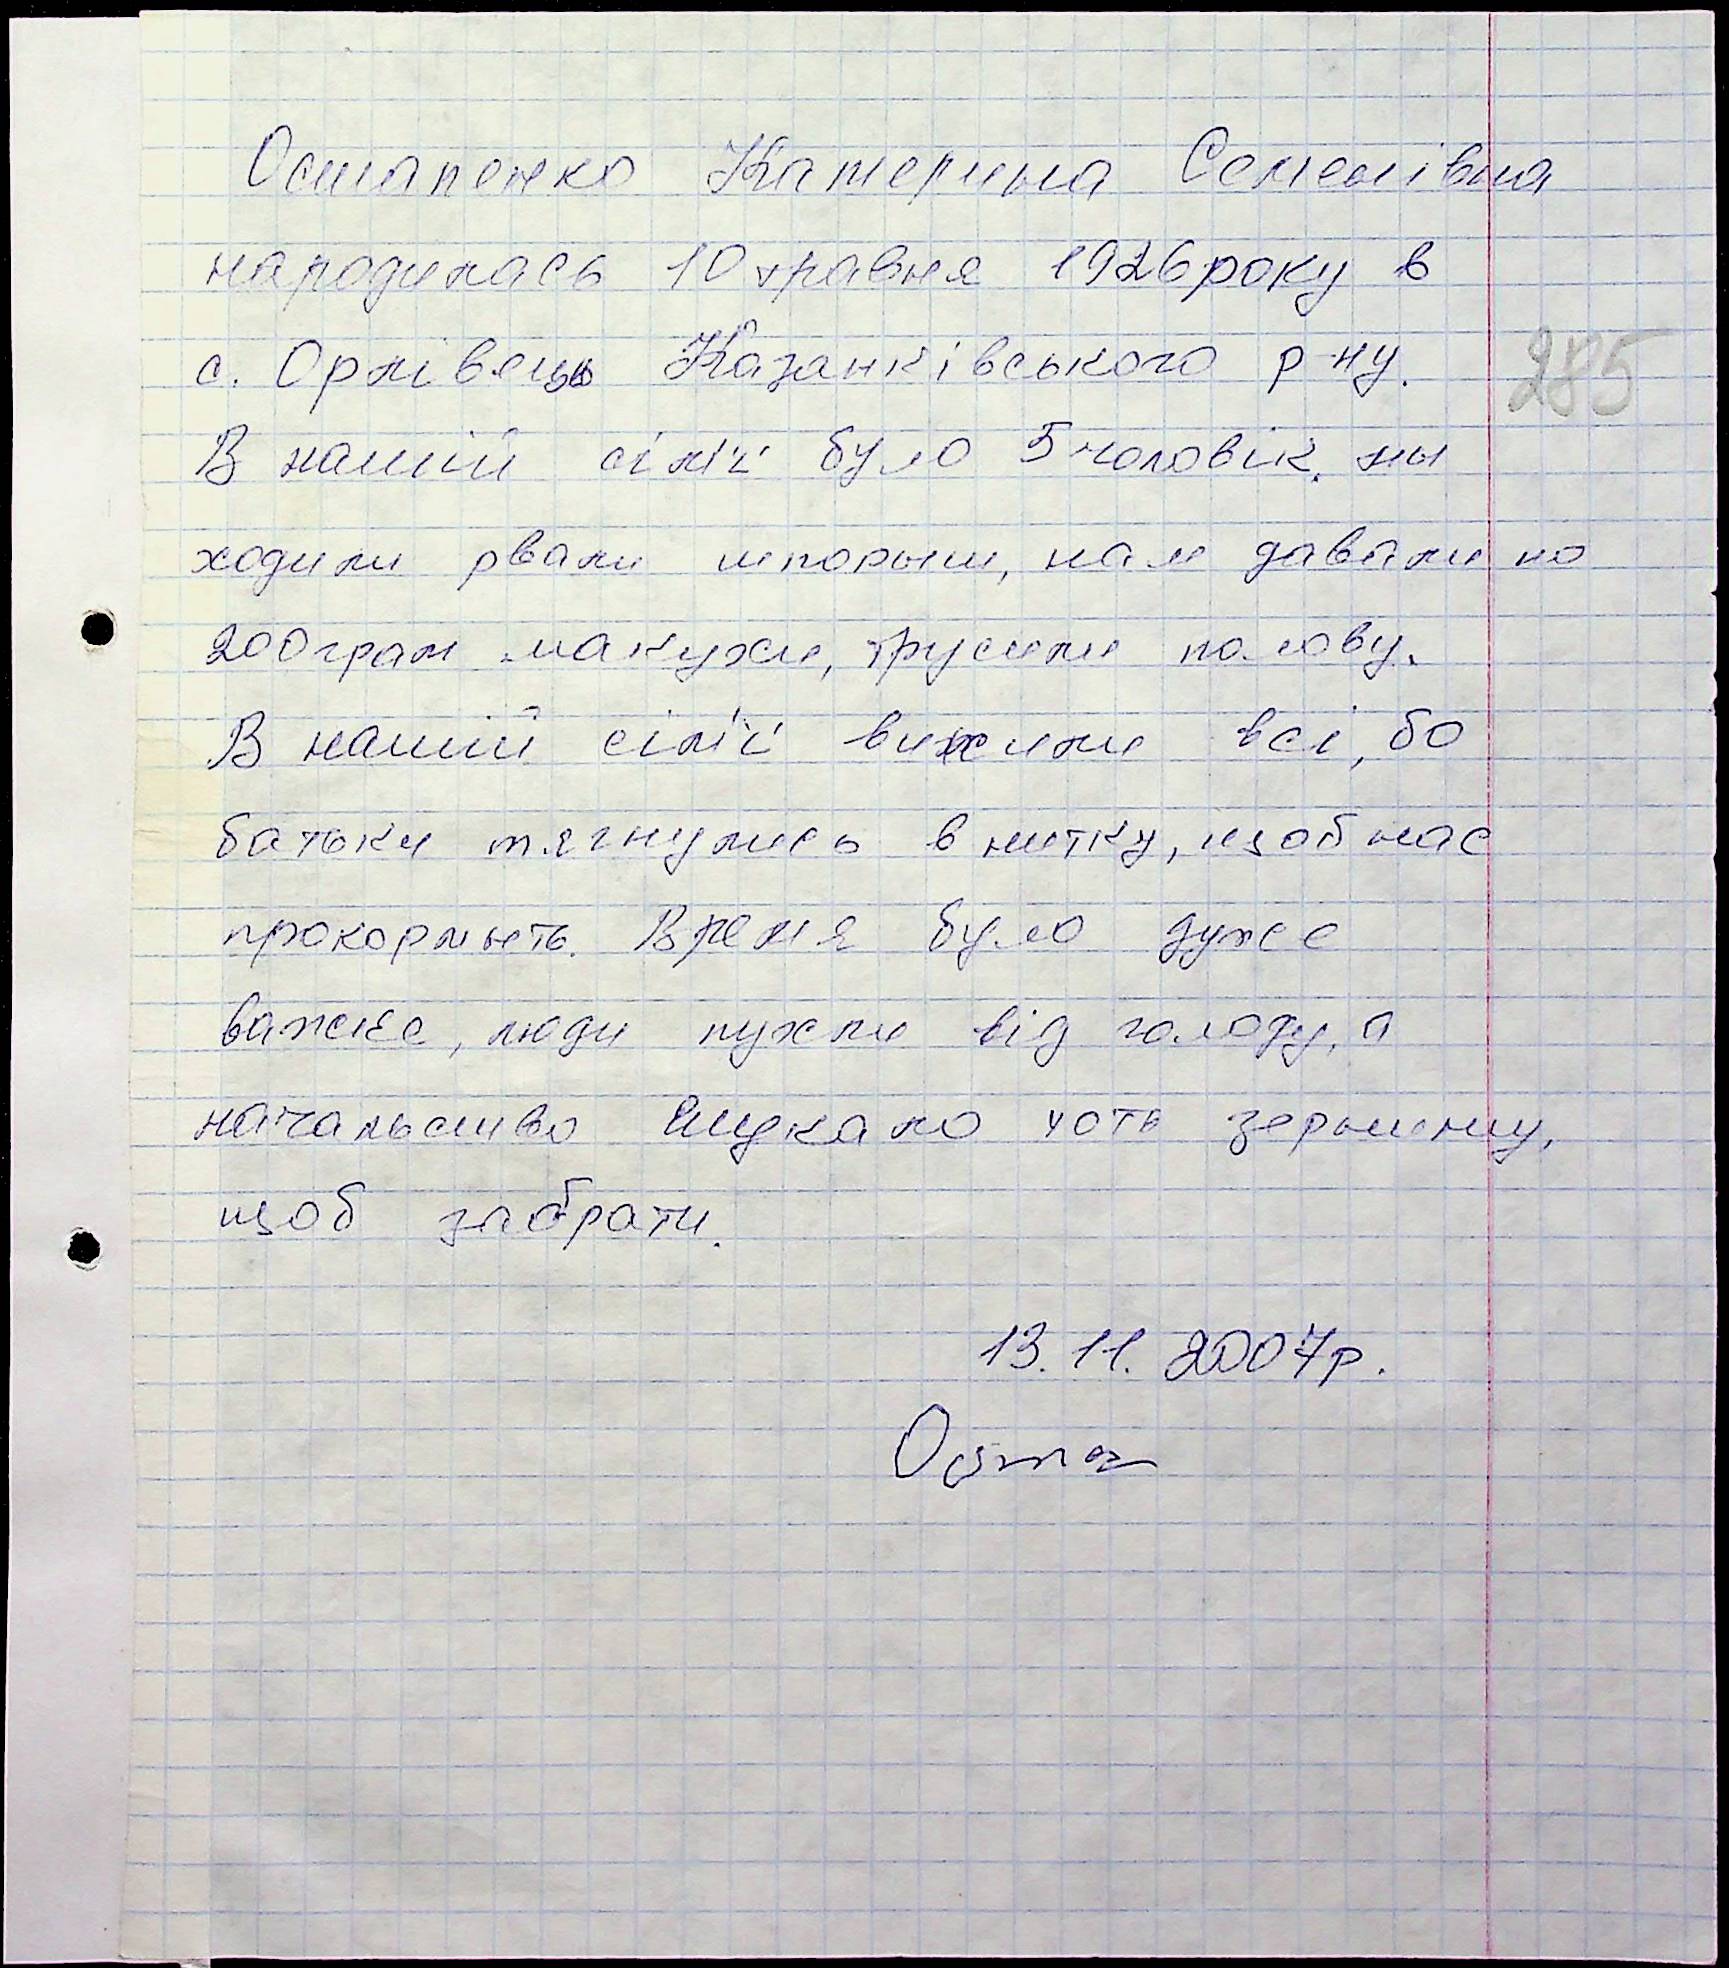 Остапенко Катерина Семенівна
народилась 10 травня 1926 року в
с. Орлівець Казанківського р-ну.
285
В нашій сімї було 5 чоловік. мы
ходили рвали шпорыш, нам давали по
200 грам макухи, трусили полову.
В нашій сім'ї вижили всі, бо
батьки тягнулись в нитку, щоб нас
прокормыть. Время було дуже
важке, люди пухли від голоду, а
начальство шукало хоть зернину,
щоб забрати.
13.11.2007р.
Оста